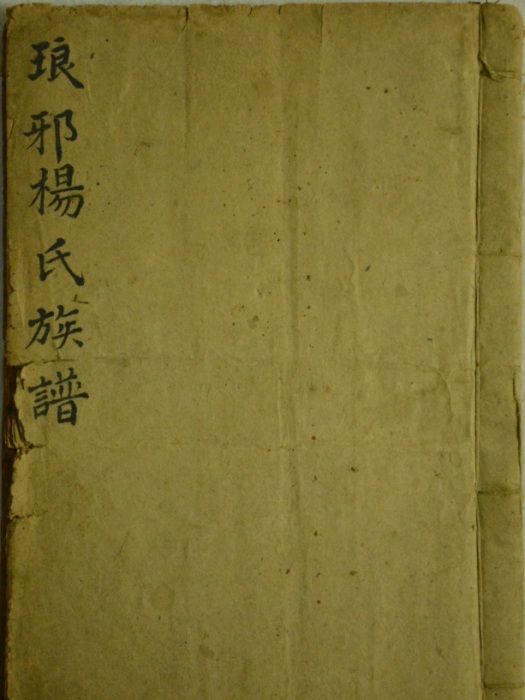 琅邪楊氏族譜